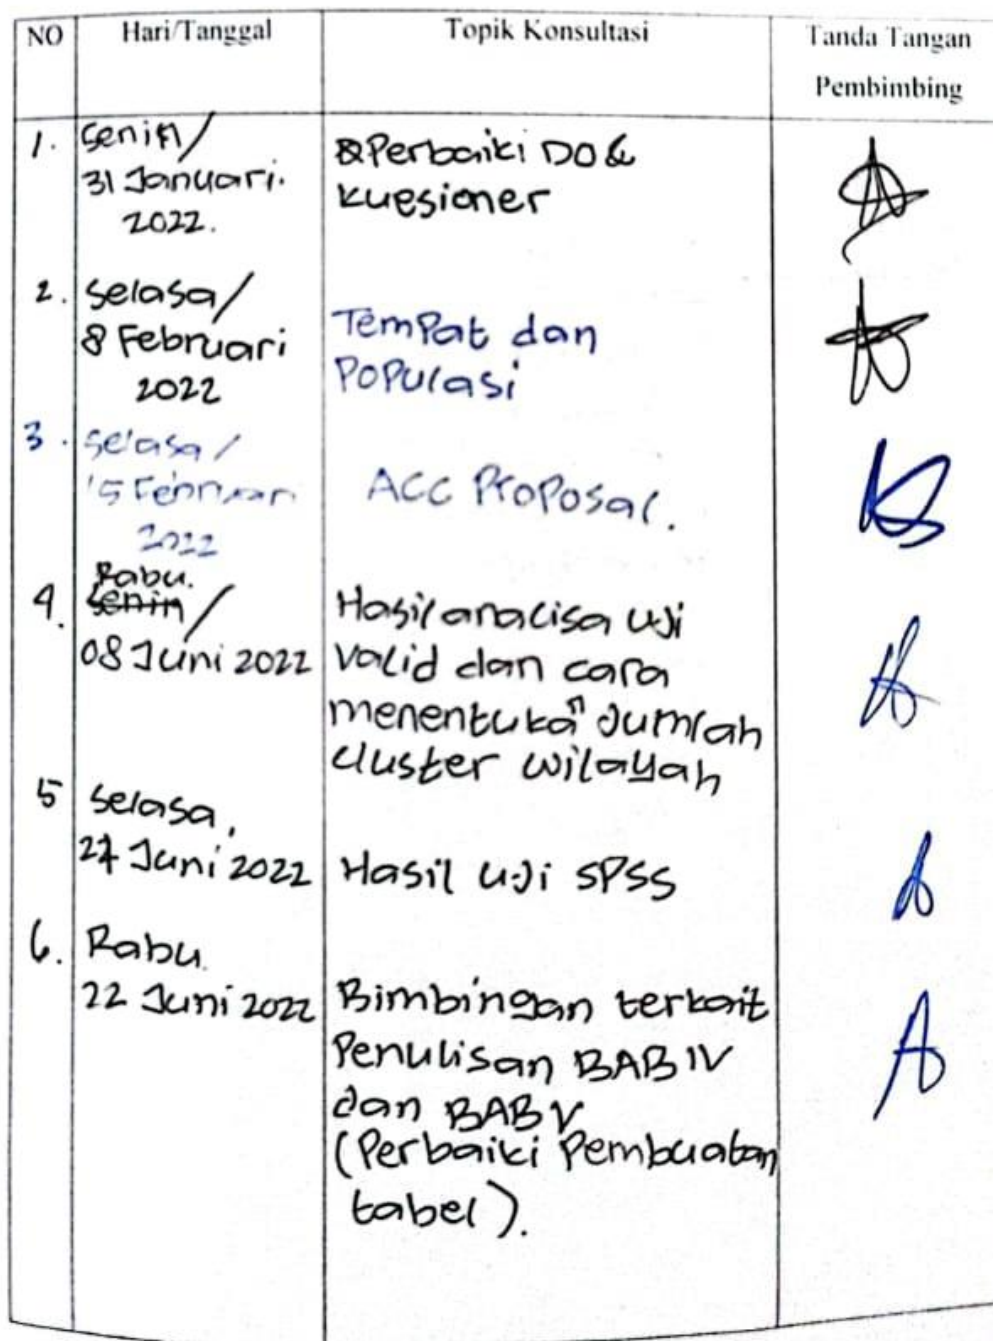 NO Hari/Tanggal Topik Konsultasi Tanda Tangan
Pembimbing
1. Senin/
31 Januari.
2022.
& Perbaiki DO &
kuesioner
2. Selasa/
8 Februari
2022
Tempat dan
Populasi
3. Selasa/
15 Februari
2022
ACC Proposal.
4. Rabu.
Senin/
08 Juni 2022
Hasil analisa uji
valid dan cara
menentukan Jumlah
cluster wilayah
5 Selasa,
21 Juni 2022
Hasil uji SPSS
6. Rabu
22 Juni 2022
Bimbingan terkait
Penulisan BAB IV
dan BAB V
(Perbaiki Pembuatan
tabel).